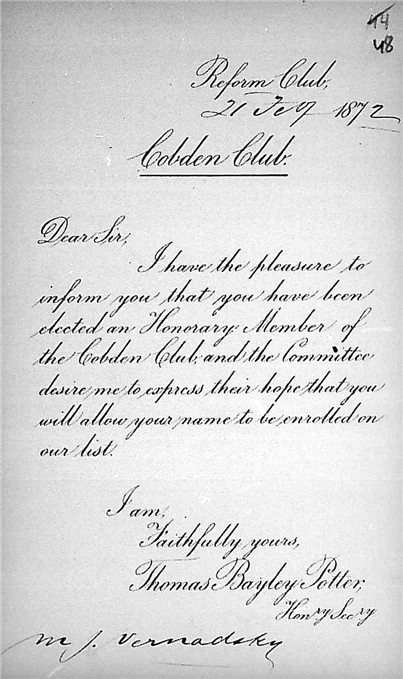 44
48
Reform Club,
21 Feby 1872
Cobden Club.
Dear Sir,
I have the pleasure to
inform you that you have been
elected an Honorary Member of
the Cobden Club, and the Committee
desire me to express their hope that you
will allow your name to be enrolled on
our list.
I am,
Faithfully yours,
Thomas Bayley Potter,
Honry Secry
M J. Vernadsky